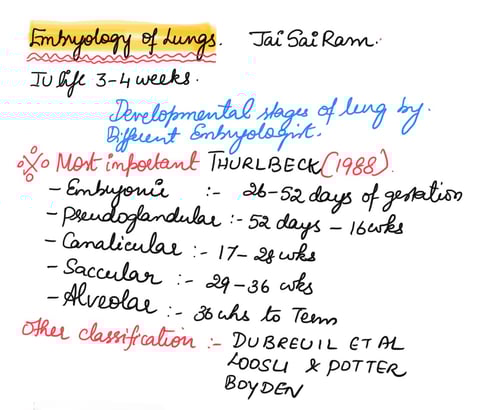 Embryology of Lungs. Jai Sai Ram.
IU life 3-4 weeks.
Developmental stages of lung by.
Different Embryologist.
Most important THURLBECK (1988).
- Embryonic :- 26-52 days of gestation
- Pseudoglandular :- 52 days - 16 wks
- Canalicular :- 17-28 wks
- Saccular :- 29-36 wks
- Alveolar :- 36 wks to Term
Other classification :- DUBREUIL ET AL
LOOSLI & POTTER
BOYDEN